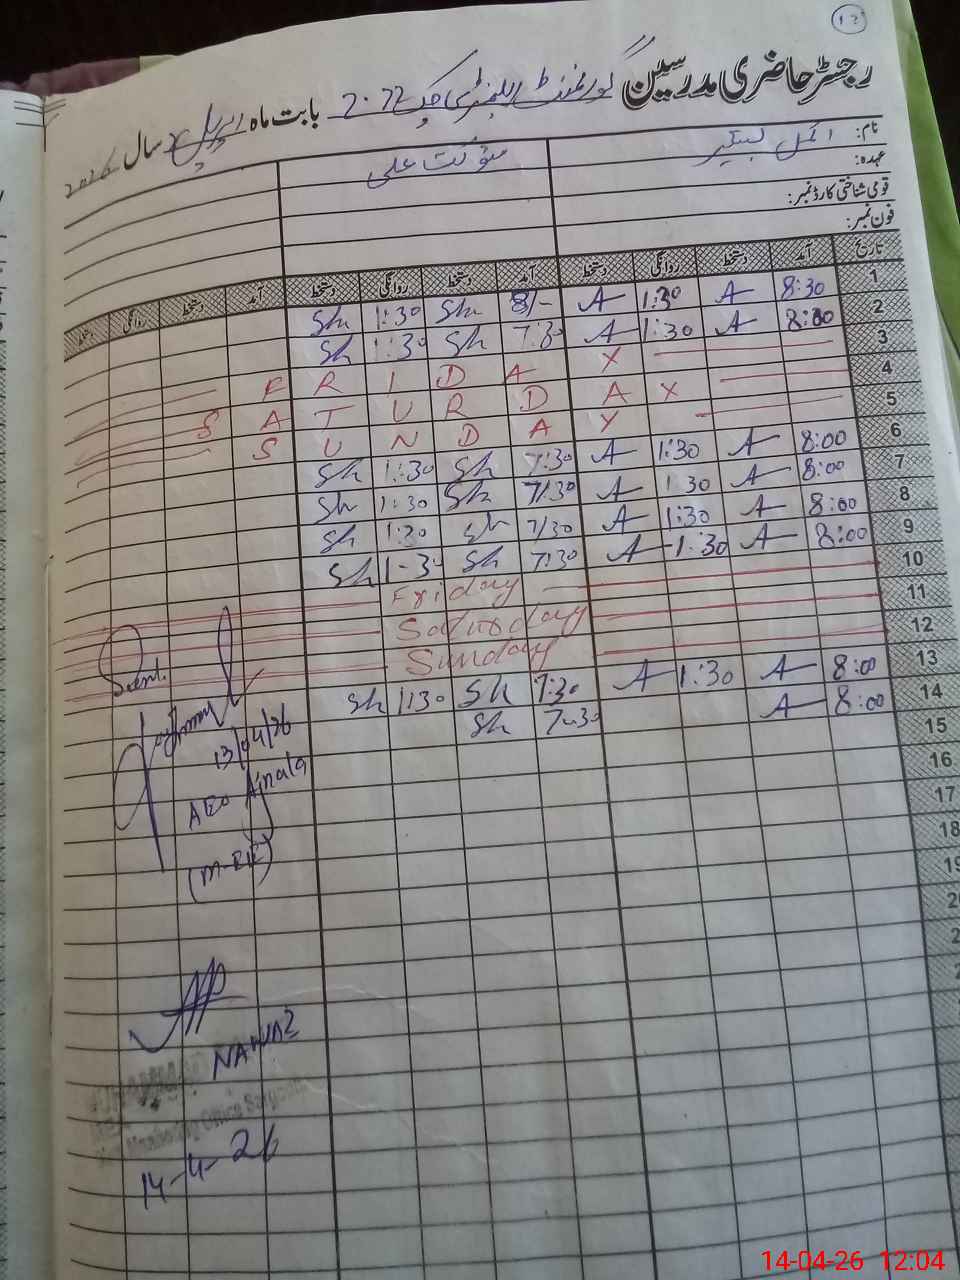 12
رجسٹر حاضری مدرسین گورنمنٹ ایلیمنٹری بابت ماہ اپریل سال 2026
نام:
شوکت علی
عہدہ:
قومی شناختی کارڈ نمبر:
فون نمبر:
تاریخ آمد دستخط روانگی دستخط آمد دستخط روانگی دستخط آمد دستخط روانگی دستخط
1 8:30 A 1:30 A 8/- Sh 1:30 Sh
2 8:00 A 1:30 A 7:30 Sh 1:30 Sh
3 F R I D A Y
4 S A T U R D A Y
5 S U N D A Y
6 8:00 A 1:30 A 7:30 Sh 1:30 Sh
7 8:00 A 1:30 A 7:30 Sh 1:30 Sh
8 8:00 A 1:30 A 7/30 Sh 1:30 Sh
9 8:00 A 1:30 A 7:30 Sh 1-30 Sh
10 Friday
11 Saturday
12 Sunday
13 8:00 A 1:30 A 7:30 Sh 1:30 Sh
14 8:00 A 7:30 Sh
15
16
17
18
13/04/26
AEO Ajnala
NAWAZ
14-4-26
14-04-26 12:04